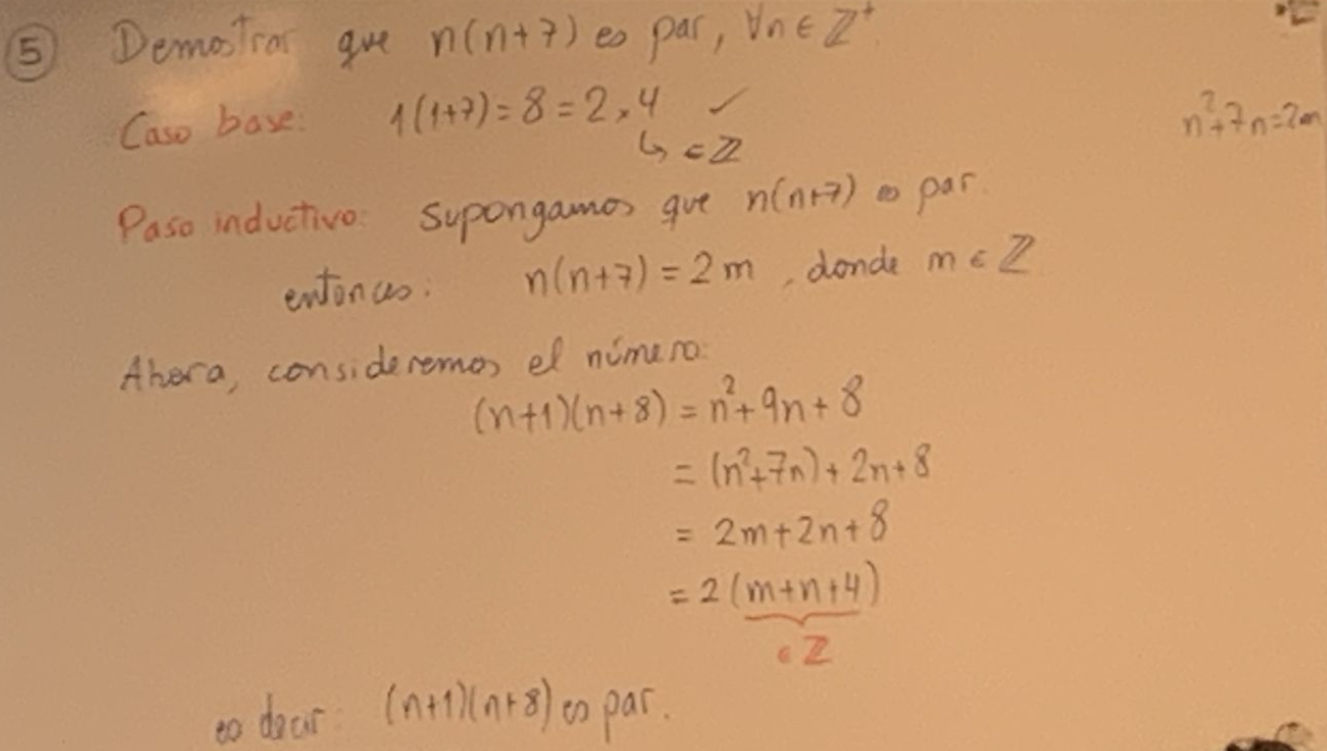 ⑤ Demostrar que n(n+7) es par, ∀n ∈ ℤ⁺
Caso base: 1(1+7) = 8 = 2 × 4 ✓
↳ ∈ ℤ
n² + 7n = 2m
Paso inductivo: Supongamos que n(n+7) es par.
entonces: n(n+7) = 2m, donde m ∈ ℤ
Ahora, consideremos el número:
(n+1)(n+8) = n² + 9n + 8
= (n² + 7n) + 2n + 8
= 2m + 2n + 8
= 2(m+n+4)
∈ ℤ
es decir: (n+1)(n+8) es par.